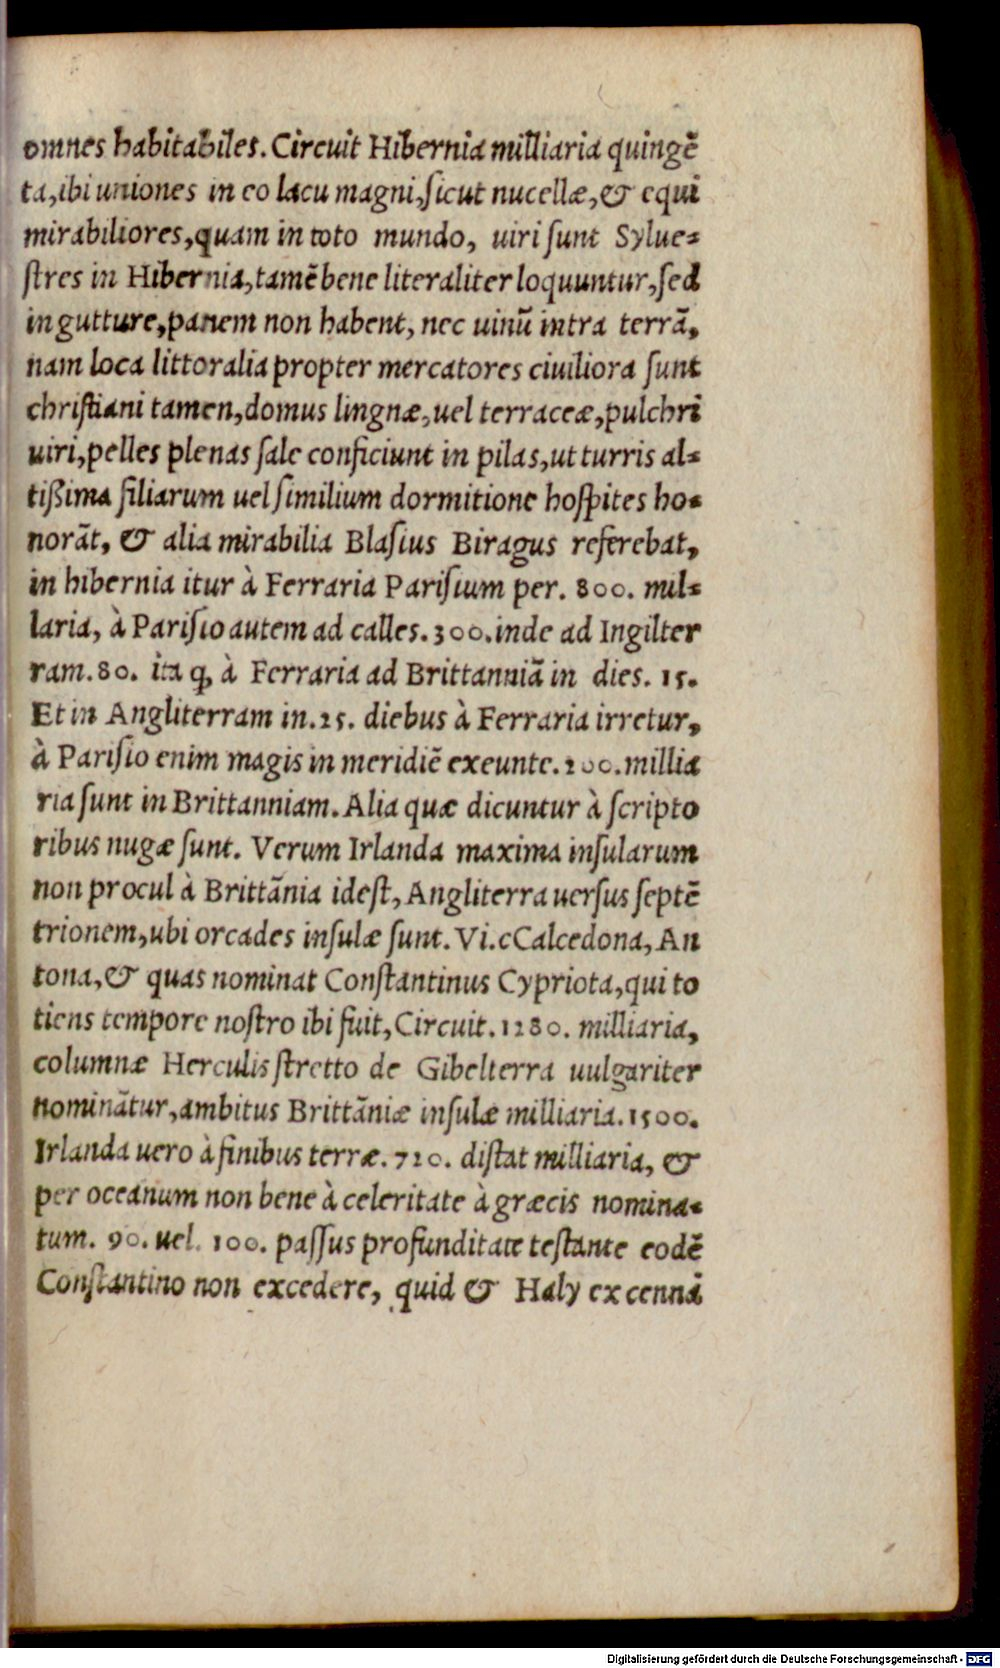 omnes habitabiles. Circuit Hibernia milliaria quingẽ
ta, ibi uniones in eo lacu magni, sicut nucellæ, & equi
mirabiliores, quam in toto mundo, uiri sunt Sylue-
stres in Hibernia, tamẽ bene literaliter loquuntur, sed
in gutture, panem non habent, nec uinũ intra terrã,
nam loca littoralia propter mercatores ciuiliora sunt
christiani tamen, domus lingnæ, uel terraceæ, pulchri
uiri, pelles plenas sale conficiunt in pilas, ut turris al-
tißima filiarum uel similium dormitione hospites ho-
norãt, & alia mirabilia Blasius Biragus referebat,
in hibernia itur à Ferraria Parisium per. 800. mil-
laria, à Parisio autem ad calles. 300. inde ad Ingilter
ram. 80. ita q; à Ferraria ad Brittanniã in dies. 15.
Et in Angliterram in. 25. diebus à Ferraria irretur,
à Parisio enim magis in meridiẽ exeunte. 200. millia
ria sunt in Brittanniam. Alia quæ dicuntur à scripto
ribus nugæ sunt. Verum Irlanda maxima insularum
non procul à Brittãnia idest, Angliterra uersus septẽ
trionem, ubi orcades insulæ sunt. Vi.cCalcedona, An
tona, & quas nominat Constantinus Cypriota, qui to
tiens tempore nostro ibi fuit, Circuit. 1280. milliaria,
columnæ Herculis stretto de Gibelterra uulgariter
nominãtur, ambitus Brittãniæ insulæ milliaria. 1500.
Irlanda uero à finibus terræ. 720. distat milliaria, &
per oceanum non bene à celeritate à græcis nomina-
tum. 90. uel. 100. passus profunditate testante eodẽ
Constantino non excedere, quid & Haly ex cenni
Digitalisierung gefördert durch die Deutsche Forschungsgemeinschaft - DFG